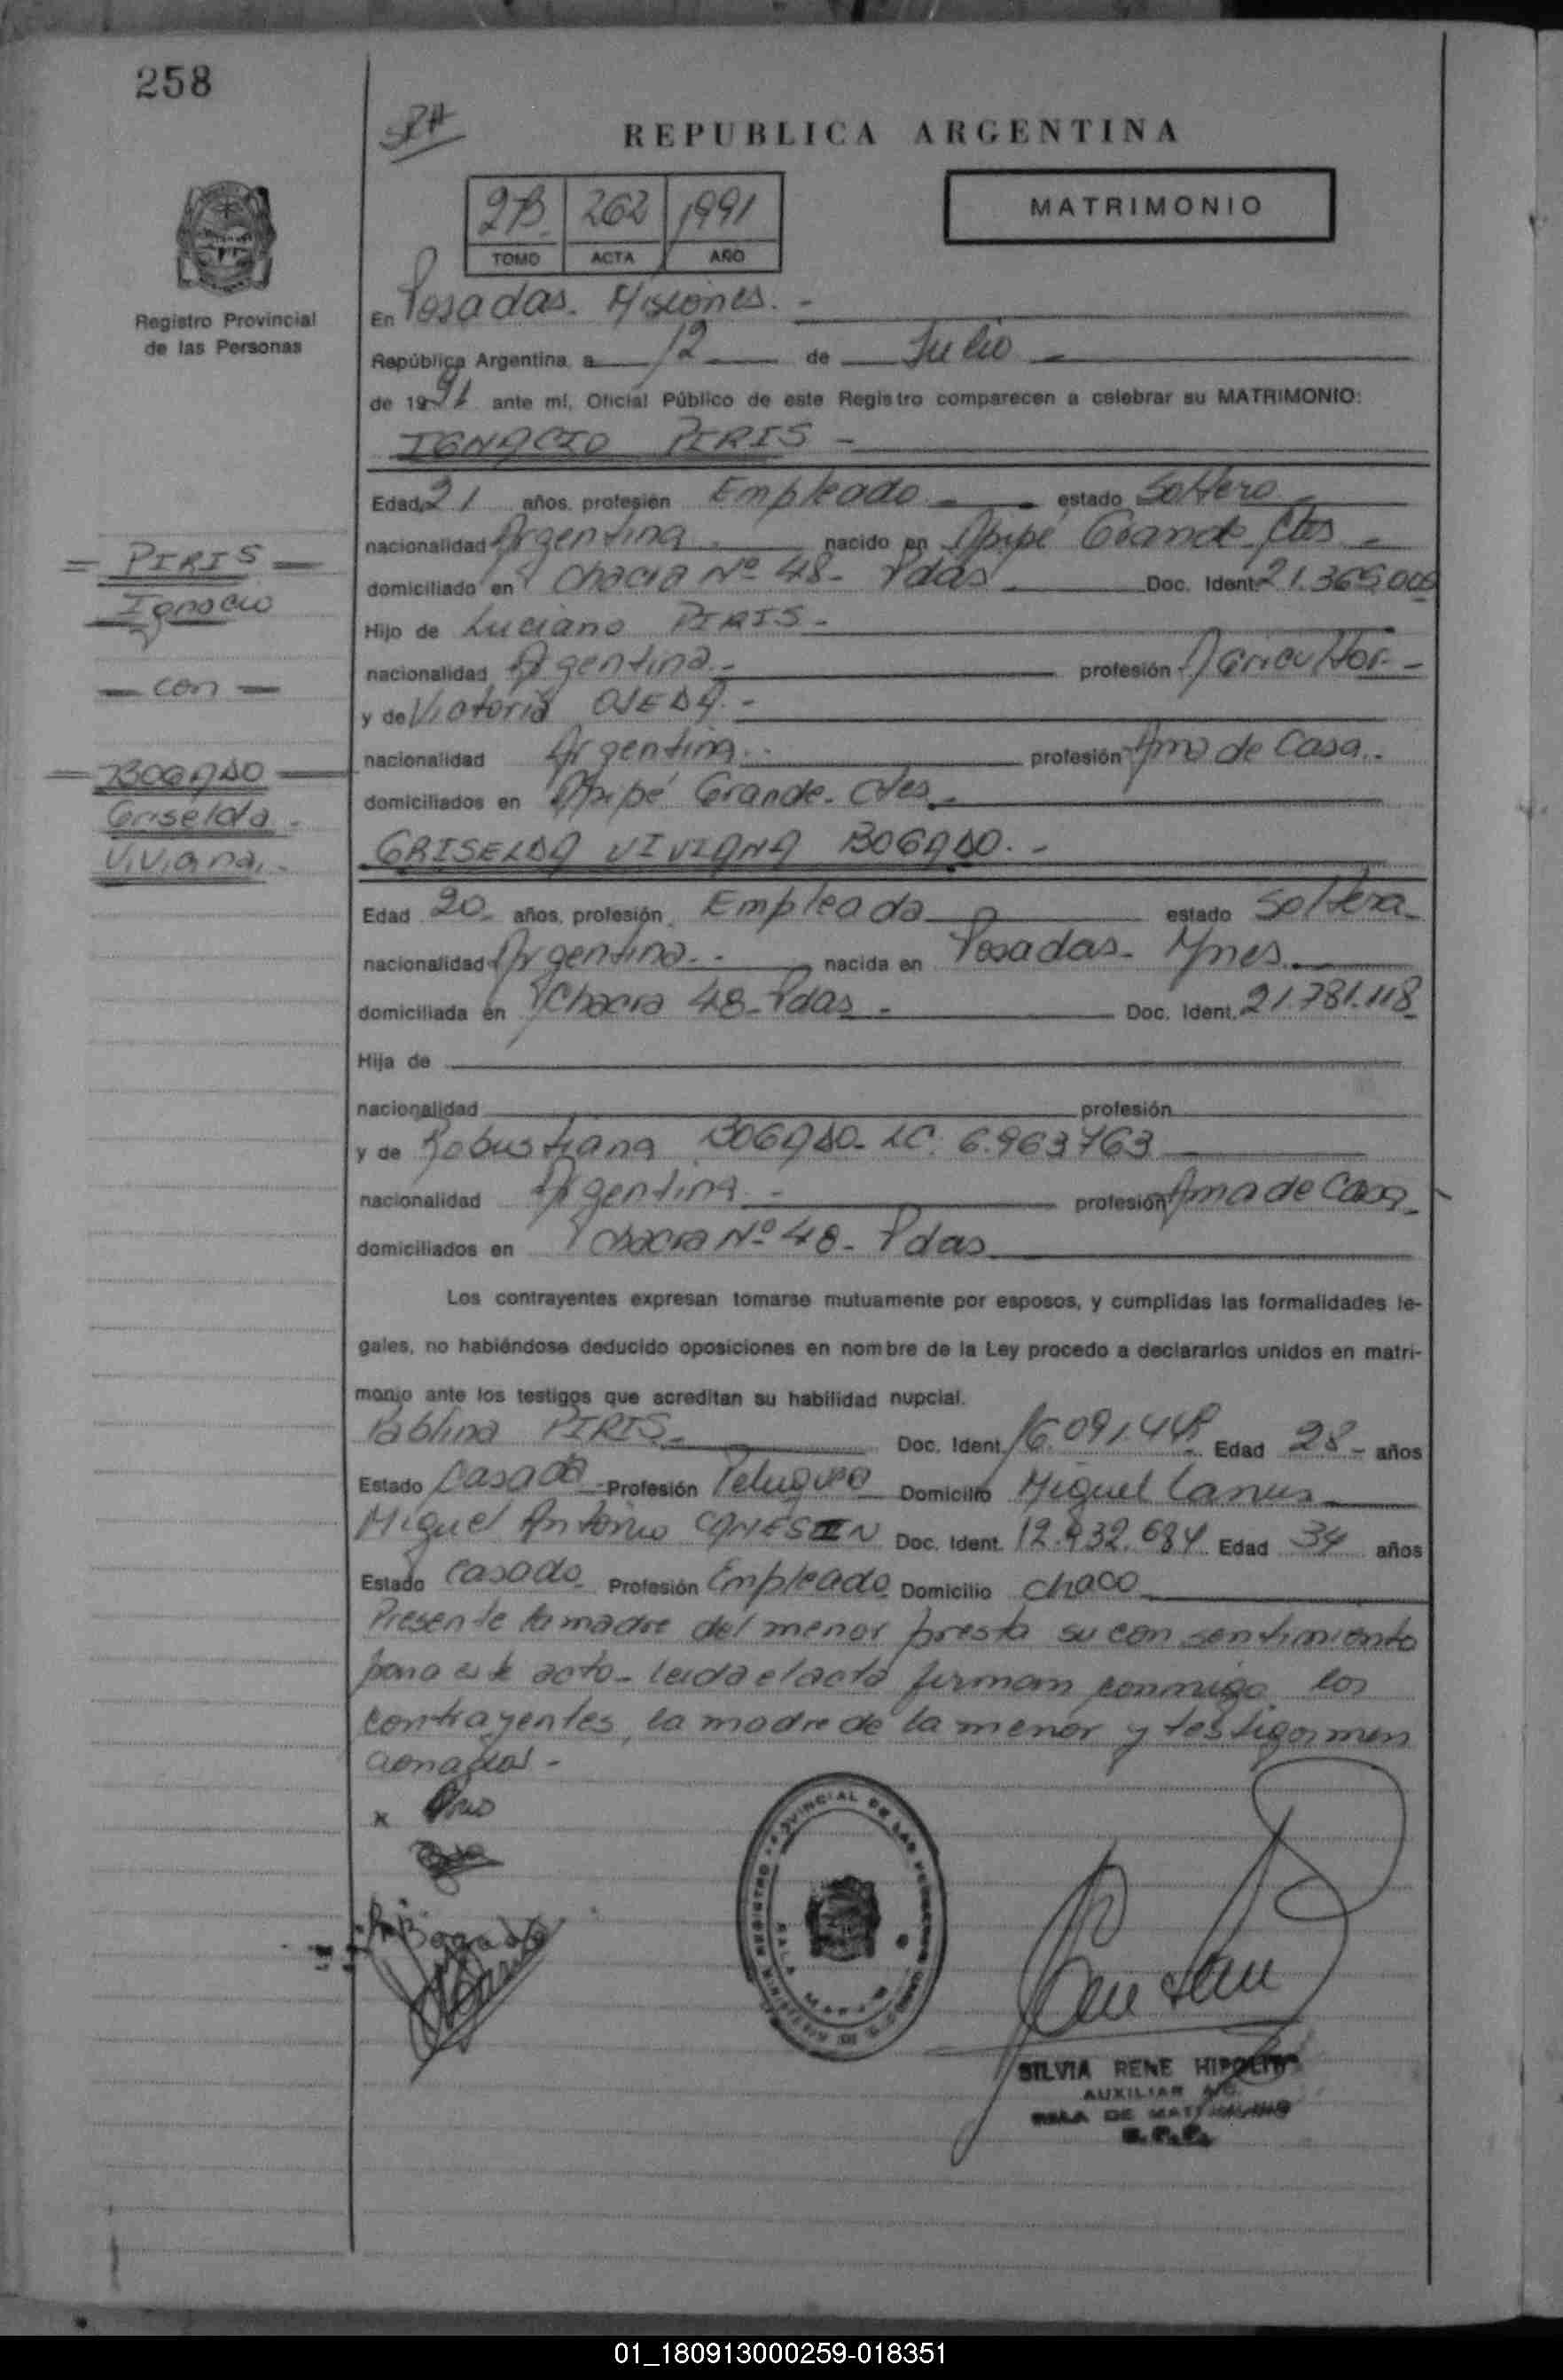 258
REPUBLICA ARGENTINA
2B. 262 1991
TOMO ACTA AÑO
MATRIMONIO
Registro Provincial
de las Personas
En Posadas. Misiones. -
República Argentina, a 12 de Julio
de 1991 ante mí, Oficial Público de este Registro comparecen a celebrar su MATRIMONIO:
IGNACIO PIRIS -
Edad 21 años, profesión Empleado estado Soltero
nacionalidad Argentina nacido en Apipé Grande Ctes -
domiciliado en Chacra Nº 48 - Pdas Doc. Ident. 21.365.006
Hijo de Luciano PIRIS -
nacionalidad Argentina - profesión Agricultor -
y de Victoria OJEDA. -
nacionalidad Argentina profesión Ama de Casa.
domiciliados en Apipé Grande. Ctes -
GRISELDA VIVIANA BOGADO. -
Edad 20 años, profesión Empleada estado Soltera
nacionalidad Argentina nacida en Posadas - Mnes
domiciliada en Chacra 48 - Pdas - Doc. Ident. 21.781.118
Hija de
nacionalidad profesión
y de Robustiana BOGADO - LC. 6.963763
nacionalidad Argentina - profesión Ama de Casa
domiciliados en Chacra Nº 48 - Pdas
Los contrayentes expresan tomarse mutuamente por esposos, y cumplidas las formalidades le-
gales, no habiéndose deducido oposiciones en nombre de la Ley procedo a declararlos unidos en matri-
monio ante los testigos que acreditan su habilidad nupcial.
Pablina PIRIS - Doc. Ident. 16.091.448 Edad 28 - años
Estado Casada Profesión Peluquera Domicilio Miguel Lanus
Miguel Antonio Doc. Ident. 12.932.684 Edad 34 años
Estado Casado Profesión Empleado Domicilio Chaco
Presente la madre del menor presta su consentimiento
para este acto - leida el acta firman conmigo los
contrayentes, la madre de la menor y testigos men
cionados -
PIRIS
Ignacio
- con -
BOGADO
Griselda
Viviana. -
x
R. Bogado
REGISTRO PROVINCIAL DE LAS PERSONAS
SILVIA RENE HIPOLITO
AUXILIAR A/C
SALA DE MATRIMONIO
01_180913000259-018351